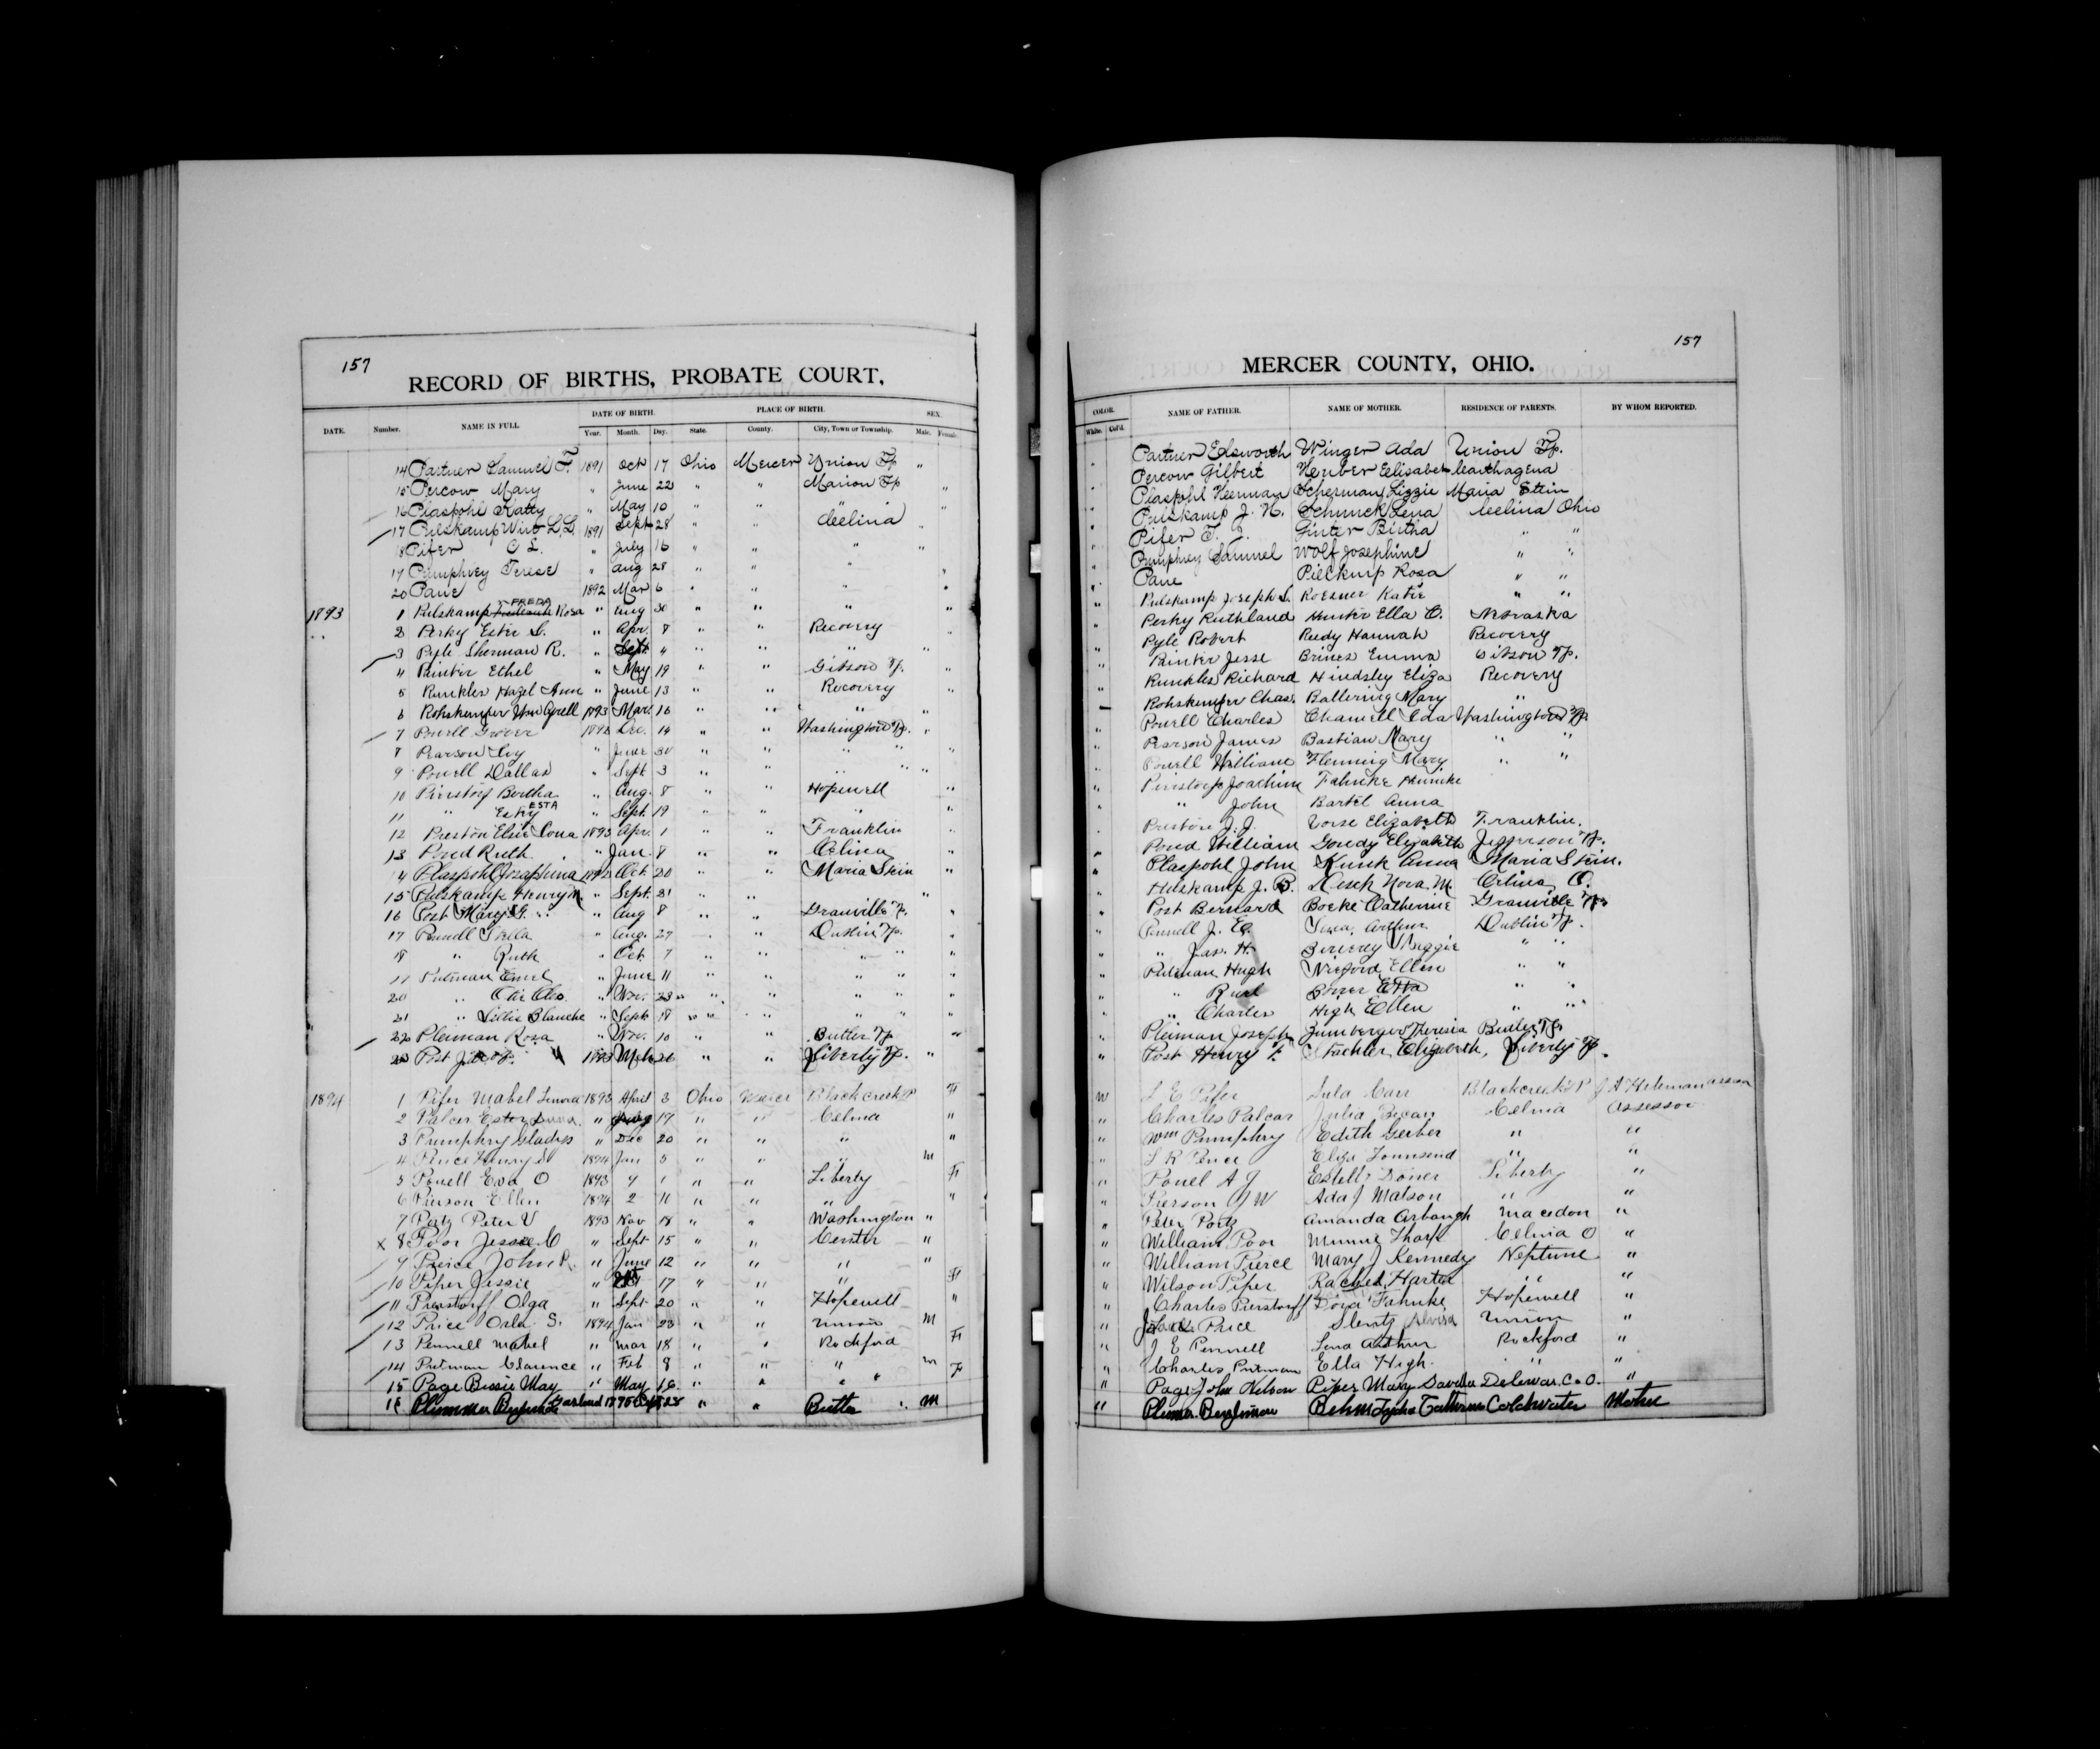 157
RECORD OF BIRTHS, PROBATE COURT,
DATE. Number. NAME IN FULL. DATE OF BIRTH. PLACE OF BIRTH. SEX.
Year. Month. Day. State. County. City, Town or Township. Male. Female.
14 Partner Samuel F. 1891 Oct 17 Ohio Mercer Union Tp "
15 Percow Mary " June 22 " " Marion Tp "
16 Plaspohl Katty " May 10 " " " "
17 Pulskamp Wirt L.L. 1891 Sept 28 " " Celina "
18 Pifer O L. " July 16 " " " "
19 Pumphrey Terese " Aug 28 " " " "
20 Pane 1892 Mar 6 " " " "
1893 1 Pulskamp FREDA Rosa " Aug 30 " " " "
" 2 Perky Ester S. " Apr. 8 " " Recovery "
3 Pyle Sherman R. " Sept. 4 " " " "
4 Painter Ethel " May 19 " " Gibson Tp. "
5 Runkles Hazel Ann " June 13 " " Recovery "
6 Rohskemper 1893 Mar. 16 " " " "
7 Powell Grover 1892 Dec. 14 " " Washington Tp. "
8 Pearson Ivy " June 30 " " " " "
9 Powell Dallas " Sept 3 " " " " "
10 Pinstorf Bertha " Aug. 8 " " Hopewell "
11 " ESTA " Sept. 19 " " " "
12 Preston Elsie Iona 1893 Apr. 1 " " Franklin "
13 Pond Ruth " Jan. 8 " " Celina "
14 Plaspohl Josephina 1892 Oct. 20 " " Maria Stein "
15 Pulskamp Henry M. " Sept. 21 " " "
16 Post Mary G. " Aug 8 " " Granville Tp. "
17 " Aug. 27 " " Dublin Tp. "
18 " Ruth " Oct. 7 " " " " "
Putman " June 11 " " " " "
20 " " Nov. 23 " " " " "
21 " Lillie Blanche " Sept 18 " " " " "
22 Pleiman Rosa " Nov. 10 " " Butler Tp "
23 Post 1893 Mch 26 " " Liberty Tp. "
1894 1 Pifer Mabel 1893 April 3 Ohio Mercer Blackcreek Tp F
2 Palcer Ester " 17 " " Celina "
3 Pumphry Gladys " Dec 20 " " " "
4 Pence Henry S 1894 Jan 5 " " " M
5 Powell Eva O 1893 9 1 " " Liberty F
6 Pierson Ellen 1894 2 11 " " " "
7 Portz Peter V 1893 Nov 18 " " Washington "
x 8 Poor Jessie C " Sept 15 " " Center "
9 Pierce John R. " June 12 " " " "
10 Piper Jessie " 17 " " " F
11 Pierstorff Olga " Sept 20 " " Hopewell "
12 Price Orla S. 1894 Jan 23 " " Union M
13 Pennell Mabel " Mar 18 " " Rockford F
14 Putman Clarence " Feb 8 " " " M
15 Page Bessie May " May 16 " " " " F
16 Plummer 1895 Sept 28 " " Butler " M
157
MERCER COUNTY, OHIO.
COLOR. NAME OF FATHER. NAME OF MOTHER. RESIDENCE OF PARENTS. BY WHOM REPORTED.
White. Col'd.
" Partner Edsworth Winger Ada Union Tp.
" Percow Gilbert Carthagena
" Plaspohl Herman Scherman Lizzie Maria Stein
" Pulskamp J. H. Schunck Lena Celina Ohio
" Pifer Ginter Birtha " "
" Pumphrey Samuel Wolf Josephine " "
" Pane Pielkmp Rosa " "
" Pulskamp Joseph S. Roesner Katie " "
" Perky Ruthland Hunter Ella C. Nebraska
" Pyle Robert Reedy Hannah Recovery
" Painter Jesse Brines Emma Gibson Tp.
" Runkles Richard Hindsley Eliza Recovery
" Rohskemper Chas. Baltering Mary "
" Powell Charles Ida Washington Tp
" Pearson James Bastian Mary " "
" Powell William Fleming Mary " "
" Pinstorf Joachim Fahnke
" " John Bartel Anna
" Preston J.J. Vorse Elizabeth Franklin.
" Pond William Elizabeth Jefferson Tp.
" Plaspohl John Kunk Anna Maria Stein.
" Pulskamp J. B. Desch Nora M. Celina O.
" Post Bernard Catherine Granville Tp
" Pennell J. E. Dublin Tp.
" " Jas. H. Maggie " "
" Putman Hugh Ellen " "
" " Etta " "
" " Charles High Ellen " "
" Pleiman Joseph Zumberger Theresia Butler Tp
" Post Henry F. Stachler Elizabeth, Liberty Tp.
W L E Pifer Lula Carr Blackcreek Tp J A Hileman assor
" Charles Palcar Julia Celina Assessor
" Wm Pumphry Edith Gerber " "
" S R Pence Eliza Townsend " "
" Powel A J Estella Doner Liberty "
" Pierson G W Ada J Matson " "
" Peter Portz Amanda Arbaugh Macedon "
" William Poor Minnie Tharp Celina O "
" William Pierce Mary J Kennedy Neptune "
" Wilson Piper Rachel Harter " "
" Charles Pierstorff Dora Fahnke Hopewell "
" Price Slentz Alvisa Union "
" J E Pennell Lena Arthur Rockford "
" Charles Putman Ella High " "
" Page John Nelson Piper Mary Savilla Delewar Co O. "
" Behm Lydia Catherine Coldwater Mother